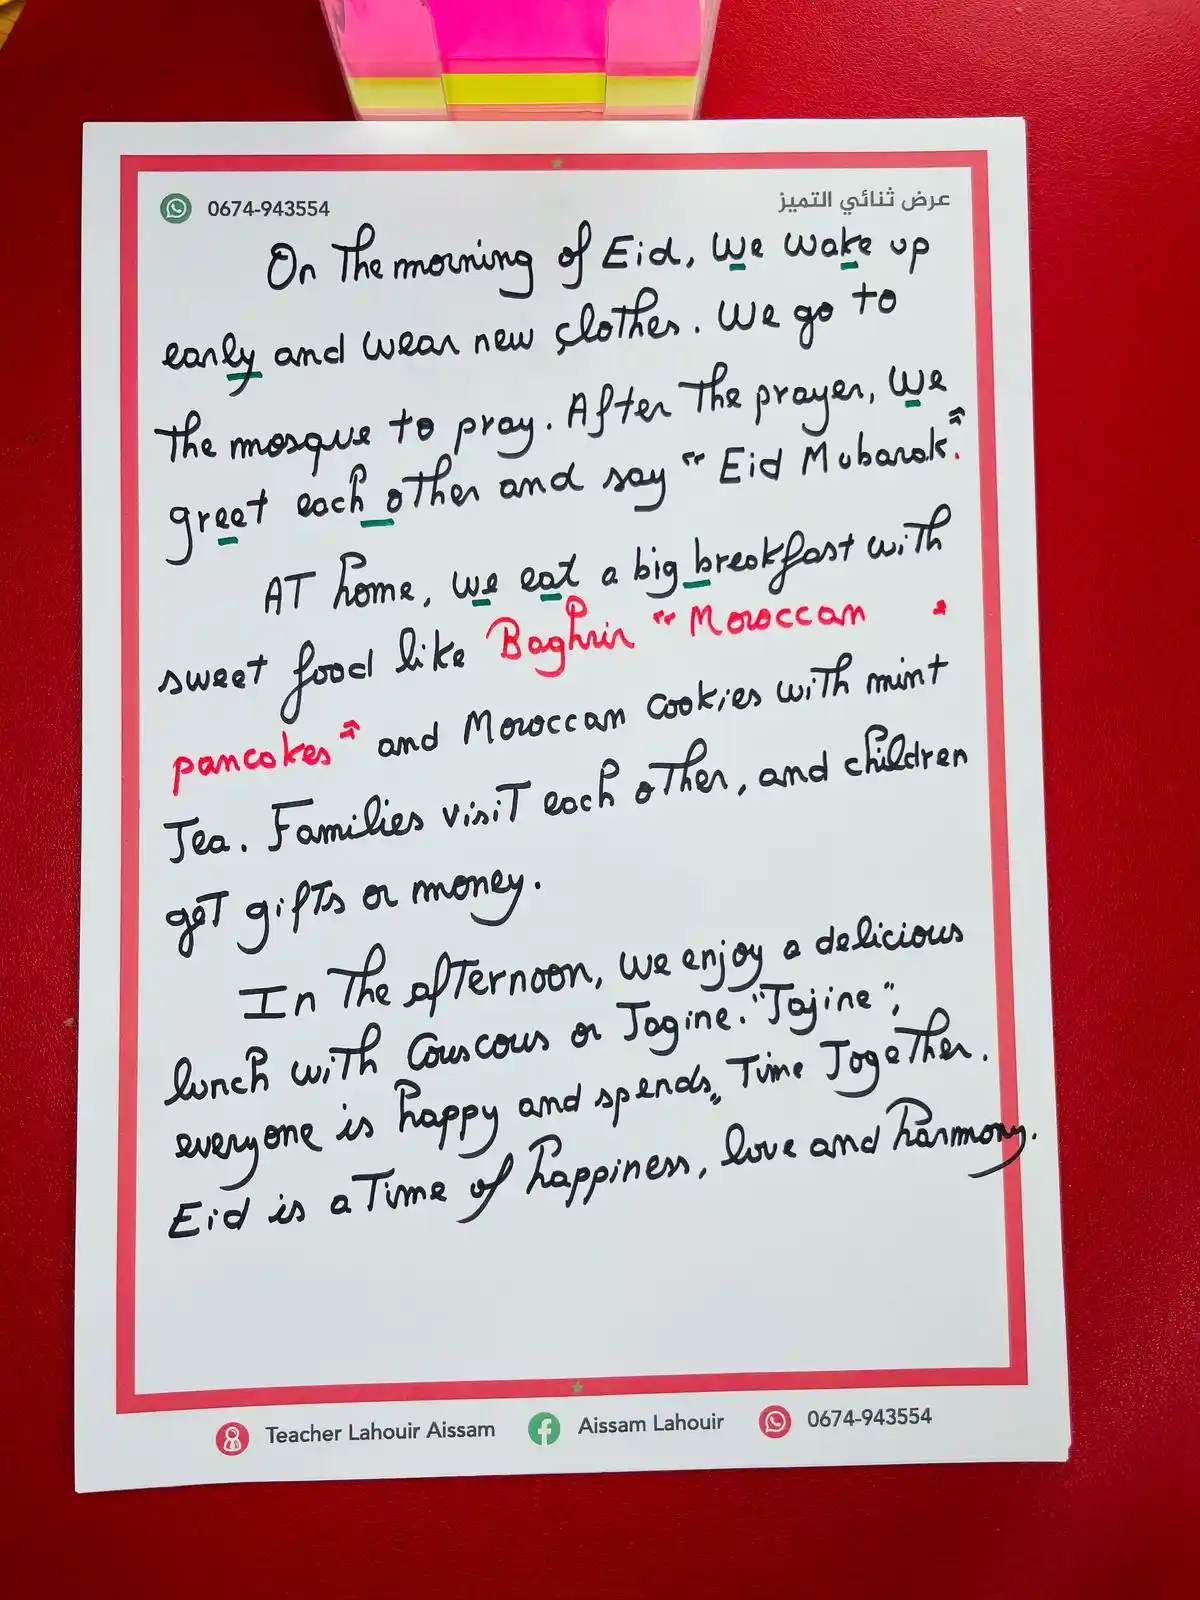 0674-943554
عرض ثنائي التميز
On The morning of Eid, we wake up
early and wear new clothes. We go to
The mosque to pray. After The prayer, we
greet each other and say "Eid Mubarak".
AT home, we eat a big breakfast with
sweet food like Baghrir "Moroccan
pancakes" and Moroccan cookies with mint
Tea. Families visiT each oTher, and children
geT gifTs or money.
In The afTernoon, we enjoy a delicious
lunch wiTh Couscous or Tagine. "Tajine",
everyone is happy and spends,, Time TogeTher.
Eid is a Time of happiness, love and harmony.
Teacher Lahouir Aissam
Aissam Lahouir
0674-943554